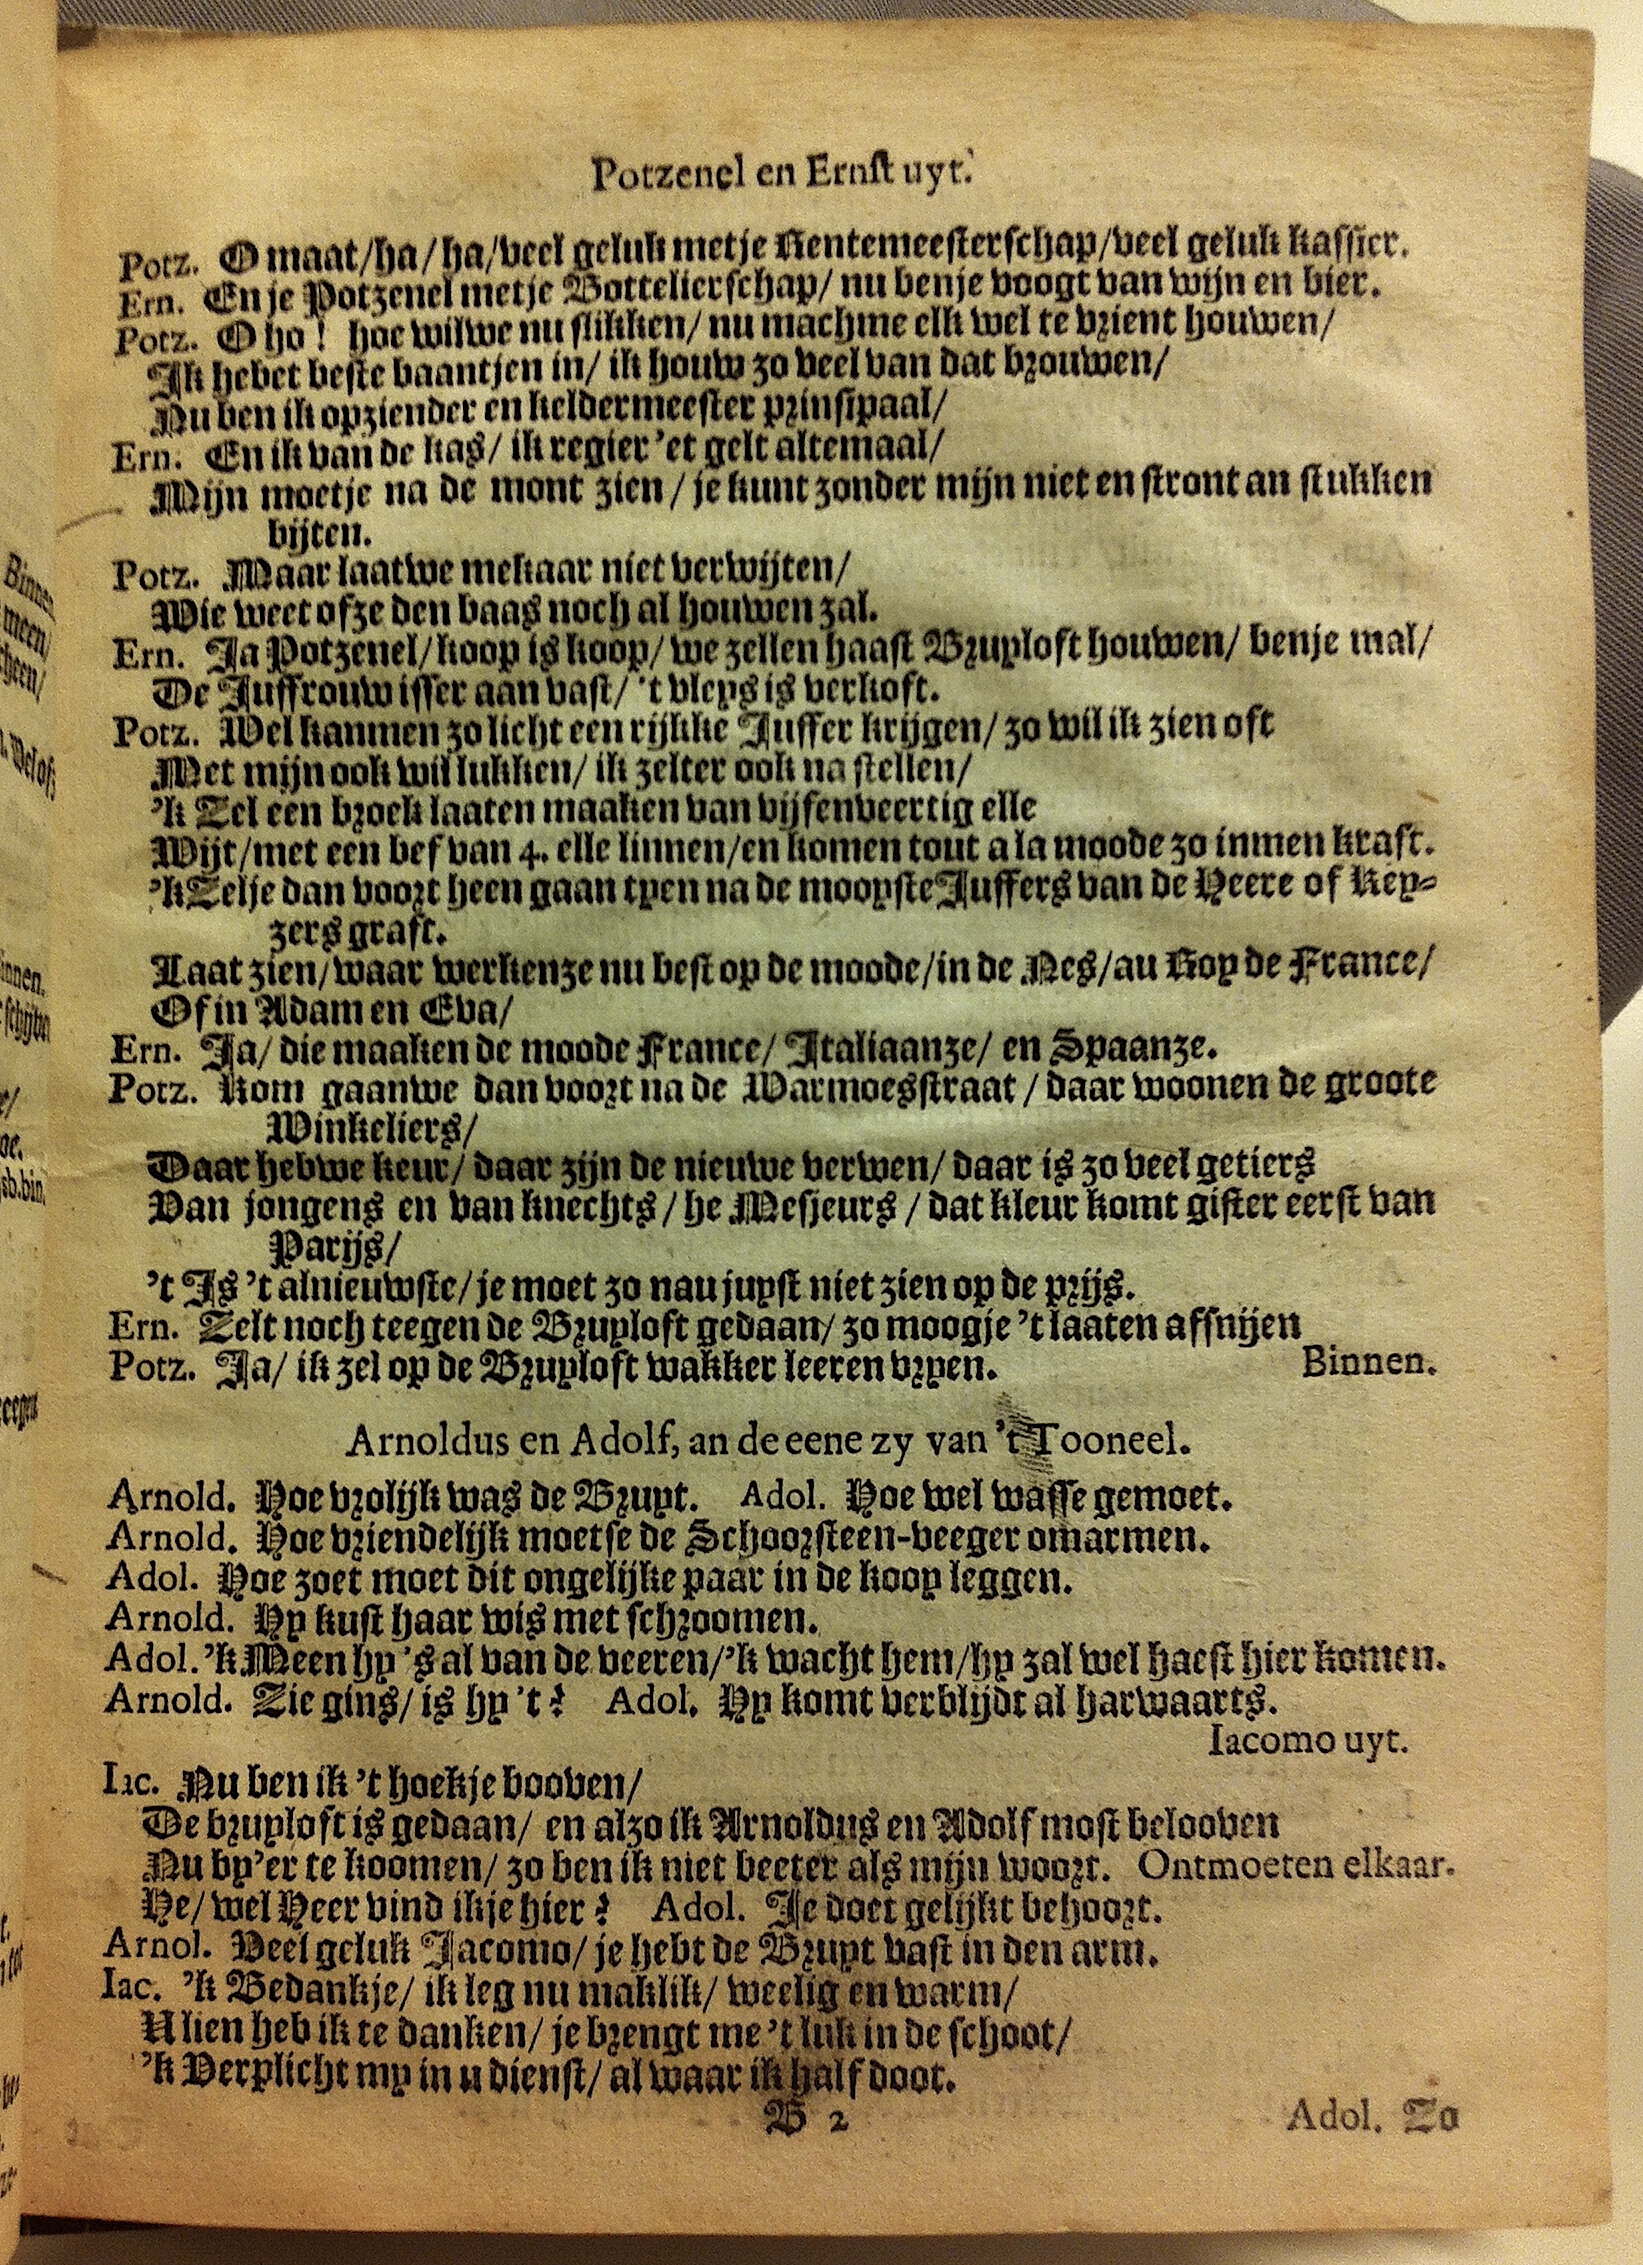 Potzenel en Ernst uyt.
Potz. O maat/ha/ha/veel geluk metje Rentemeesterschap/veel geluk kassier.
Ern. En je Potzenel metje Bottelierschap/ nu benje voogt van wijn en bier.
Potz. O ho! hoe wilwe nu slikken/ nu machme elk wel te vrient houwen/
Ik hebet beste baantjen in/ ik houw zo veel van dat brouwen/
Nu ben ik opziender en keldermeester prinsipaal/
Ern. En ik van de kas/ ik regier 'et gelt altemaal/
Mijn moetje na de mont zien/ je kunt zonder mijn niet en stront an stukken
bijten.
Potz. Maar laatwe mekaar niet verwijten/
Wie weet ofze den baas noch al houwen zal.
Ern. Ja Potzenel/koop is koop/ we zellen haast Bruyloft houwen/ benje mal/
De Juffrouw isser aan vast/ 't vleys is verkoft.
Potz. Wel kanmen zo licht een rijkke Juffer krijgen/ zo wil ik zien oft
Met mijn ook wil lukken/ ik zelter ook na stellen/
'k Zel een broek laaten maaken van vijfenveertig elle
Wijt/met een bef van 4. elle linnen/en komen tout a la moode zo inmen kraft.
'k Zelje dan voort heen gaan tyen na de mooyste Juffers van de Heere of Key-
zers graft.
Laat zien/waar werkenze nu best op de moode/in de Nes/au Roy de France/
Of in Adam en Eva/
Ern. Ja/ die maaken de moode France/ Italiaanze/ en Spaanze.
Potz. Kom gaanwe dan voort na de Warmoesstraat/ daar woonen de groote
Winkeliers/
Daar hebwe keur/ daar zijn de nieuwe verwen/ daar is zo veel getiers
Van jongens en van knechts/ he Mesjeurs/ dat kleur komt gister eerst van
Parijs/
't Is 't alnieuwste/je moet zo nau juyst niet zien op de prijs.
Ern. Zelt noch teegen de Bruyloft gedaan/ zo moogje 't laaten afsnijen
Potz. Ja/ ik zel op de Bruyloft wakker leeren vryen. Binnen.
Arnoldus en Adolf, an de eene zy van 't Tooneel.
Arnold. Hoe vrolijk was de Bruyt. Adol. Hoe wel wasse gemoet.
Arnold. Hoe vriendelijk moetse de Schoorsteen-veeger omarmen.
Adol. Hoe zoet moet dit ongelijke paar in de kooy leggen.
Arnold. Hy kust haar wis met schroomen.
Adol. 'k Meen hy 's al van de veeren/'k wacht hem/hy zal wel haest hier komen.
Arnold. Zie gins/ is hy 't? Adol. Hy komt verblijdt al harwaarts.
Iacomo uyt.
Iac. Nu ben ik 't hoekje booven/
De bruyloft is gedaan/ en alzo ik Arnoldus en Adolf most belooven
Nu by'er te koomen/ zo ben ik niet beeter als mijn woort. Ontmoeten elkaar.
He/ wel Heer vind ikje hier? Adol. Je doet gelijkt behoort.
Arnol. Veel geluk Jacomo/ je hebt de Bruyt vast in den arm.
Iac. 'k Bedankje/ ik leg nu maklik/ weelig en warm/
U lien heb ik te danken/ je brengt me 't luk in de schoot/
'k Verplicht my in u dienst/ al waar ik half doot.
B 2
Adol. Zo